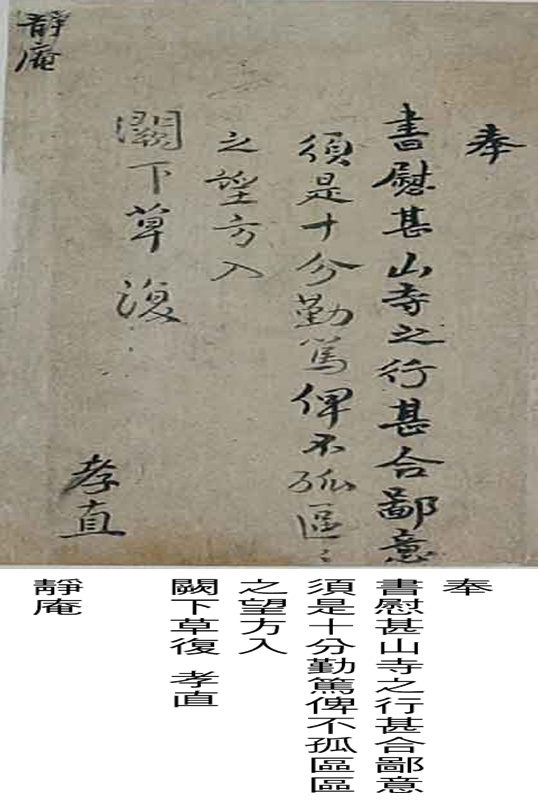 奉
書慰甚山寺之行甚合鄙意
須是十分勤篤俾不孤區〻
之望方入
闕下草復
孝直
靜庵
奉
書慰甚山寺之行甚合鄙意
須是十分勤篤俾不孤區區
之望方入
闕下草復 孝直
靜庵